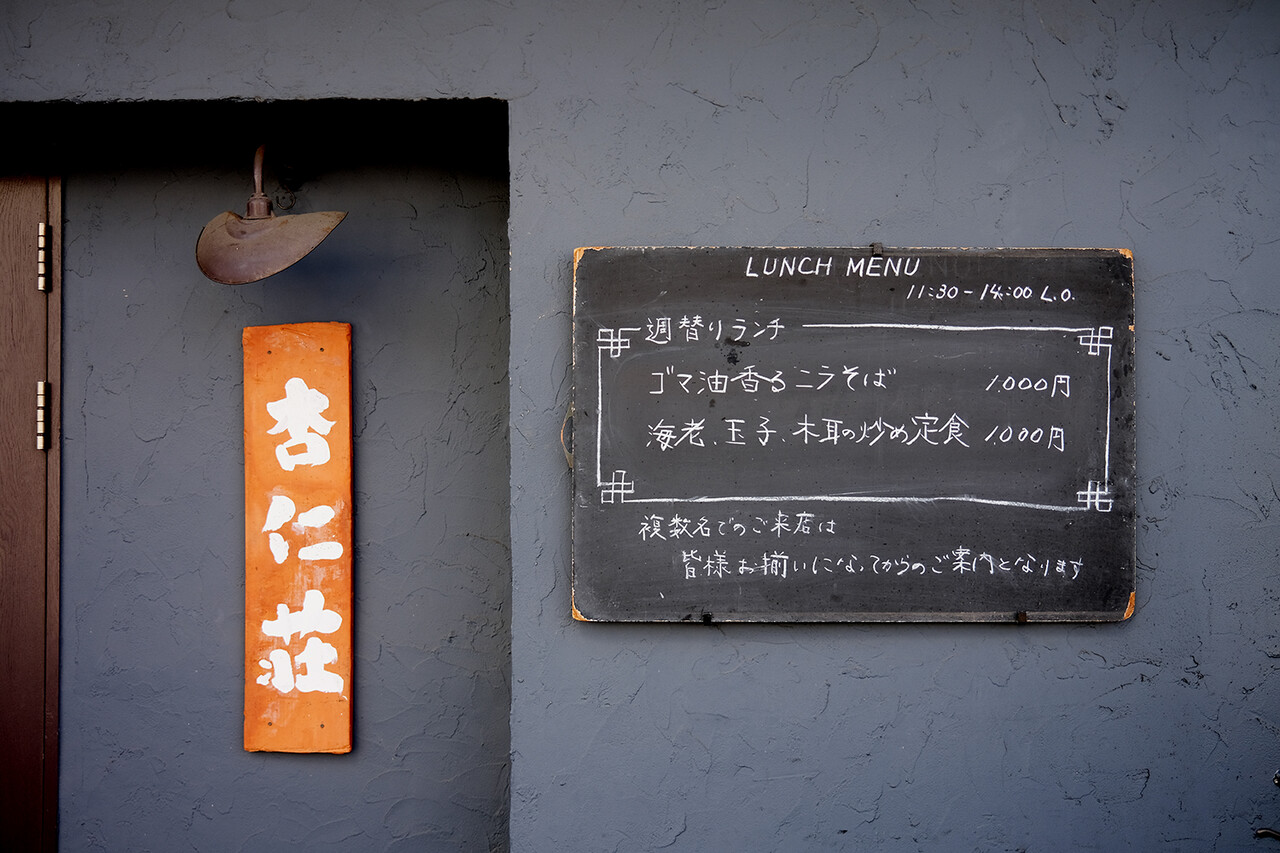 杏仁荘
LUNCH MENU
11:30-14:00 L.O.
週替りランチ
ゴマ油香るニラそば 1.000円
海老、玉子、木耳の炒め定食 1.000円
複数名でのご来店は
皆様お揃いになってからのご案内となります